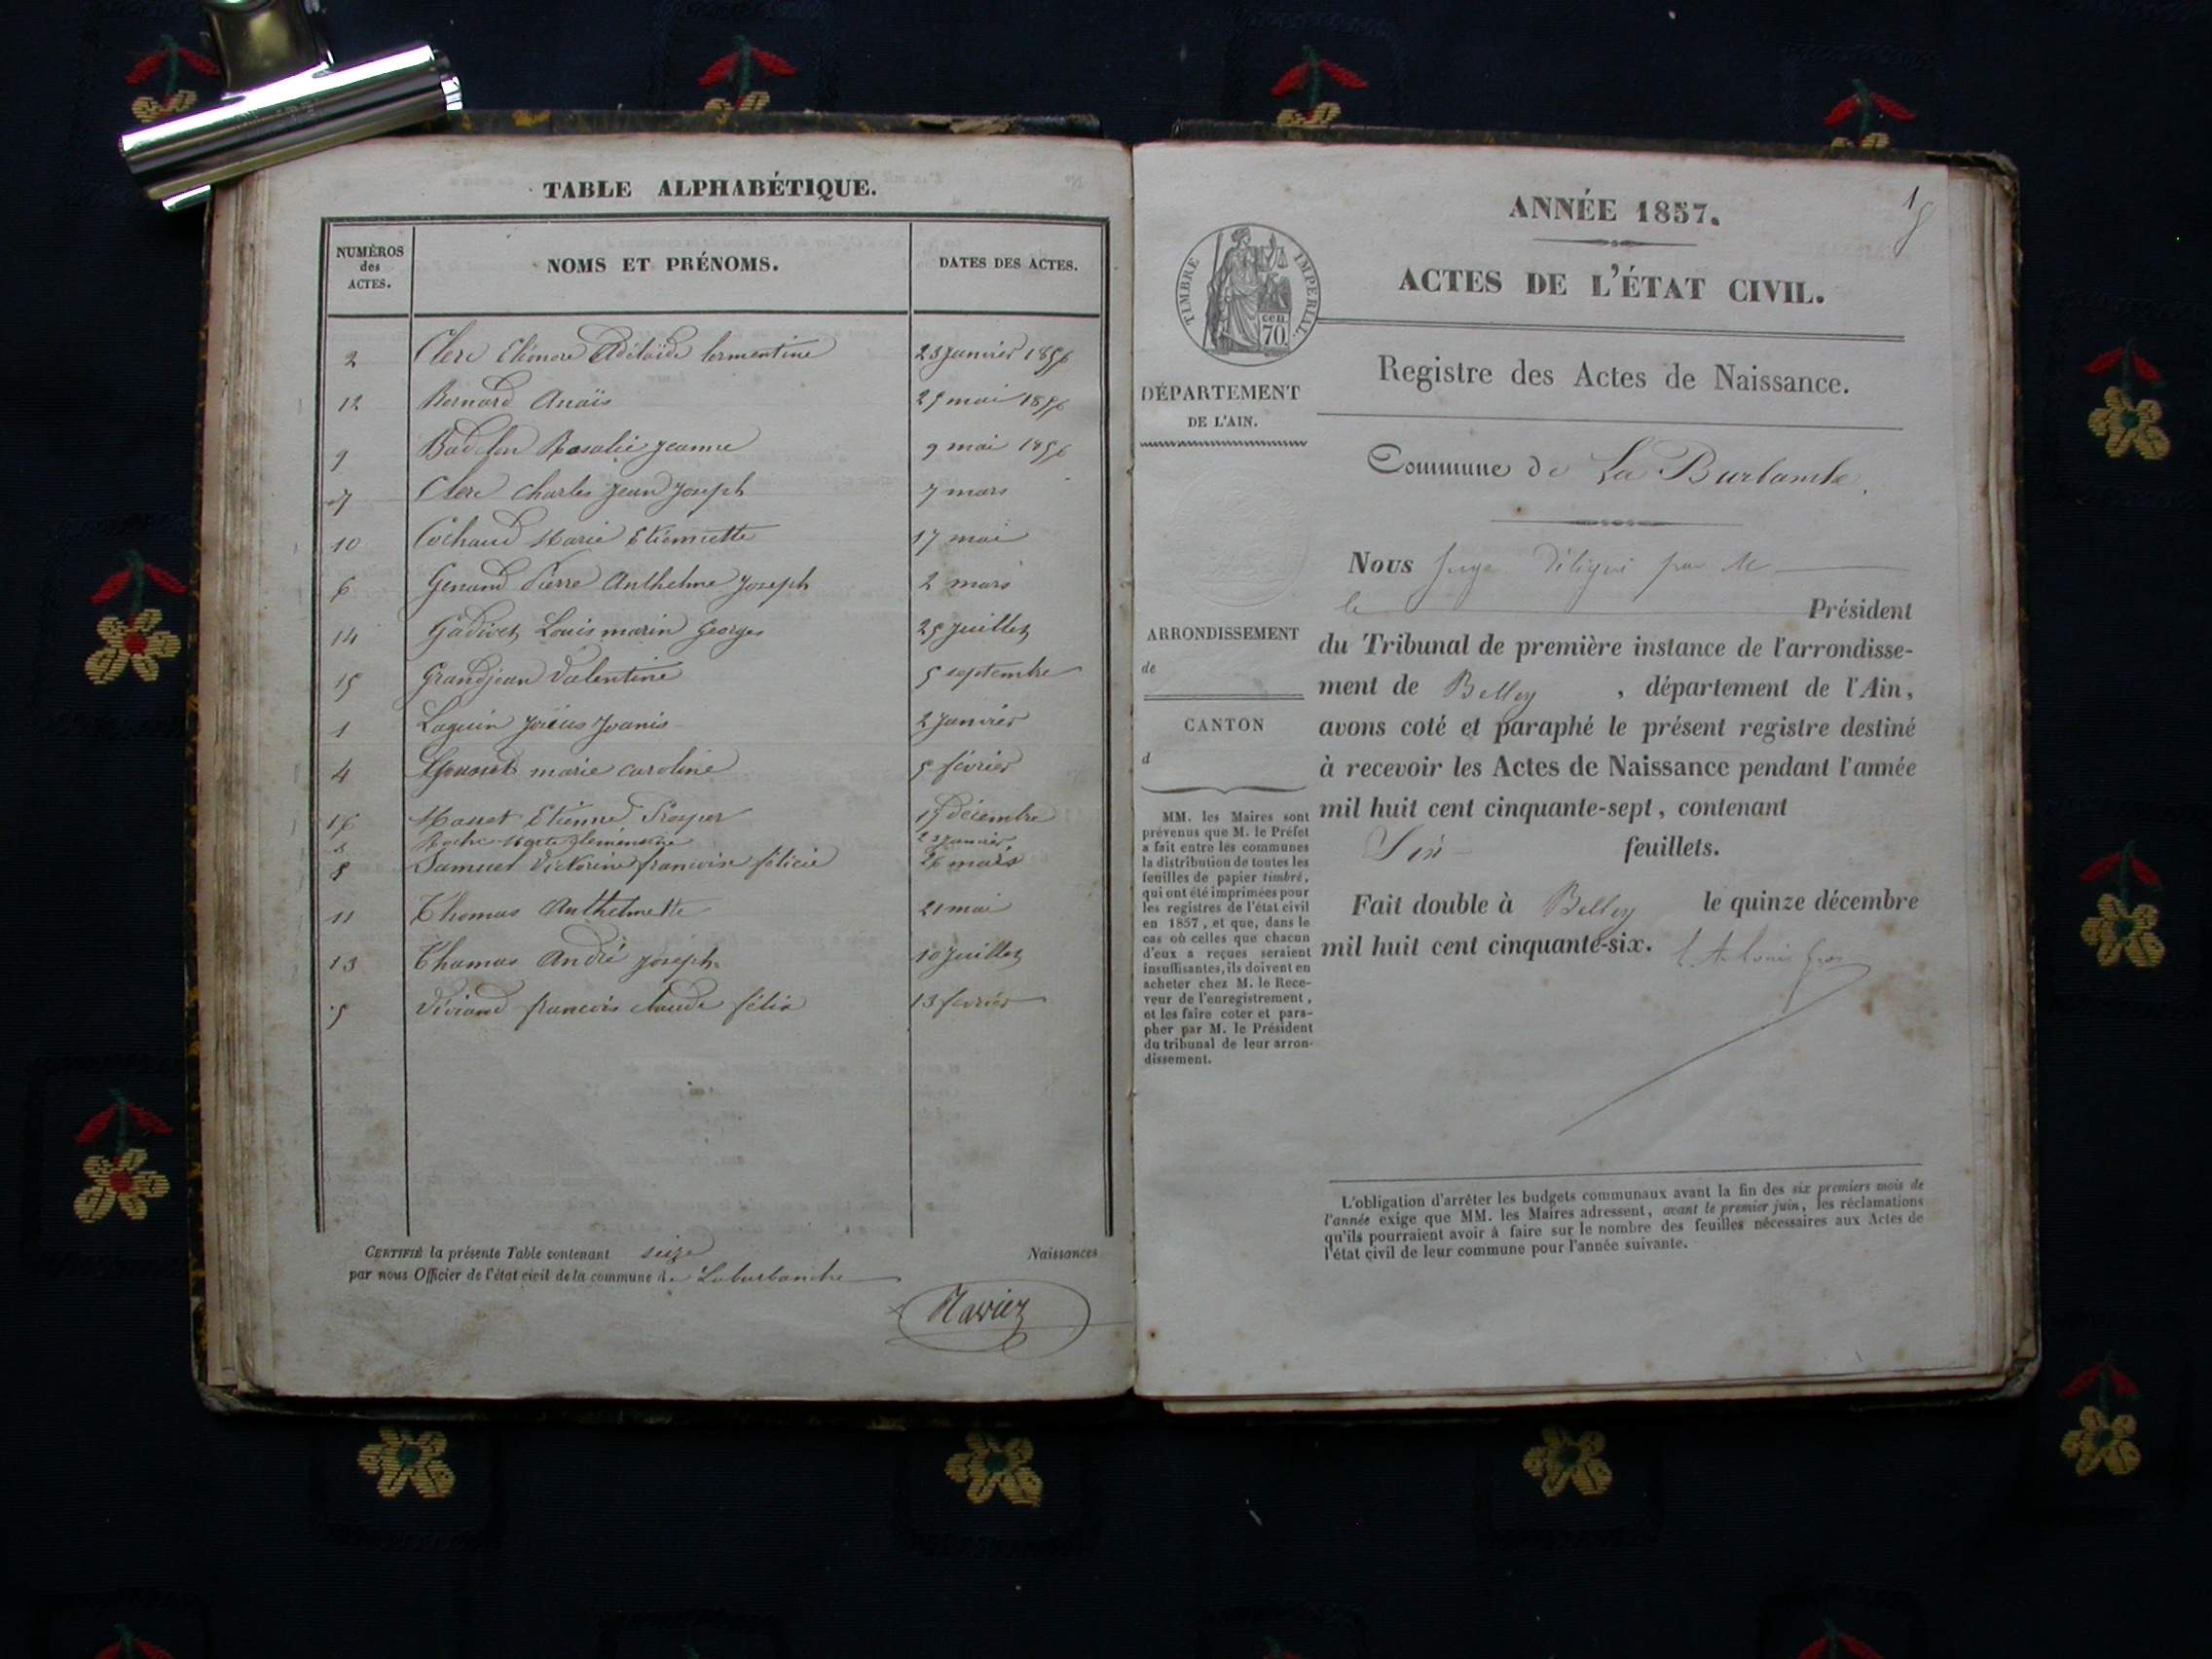 TABLE ALPHABÉTIQUE.
NUMÉROS des ACTES. NOMS ET PRÉNOMS. DATES DES ACTES.
2 Clerc Eléonore Adélaïde 23 janvier 1856
12 Bernard Anaïs 25 mai 1856
9 Rosalie Jeanne 9 mai 1856
7 Clerc Charles Jean Joseph 7 mars
10 Cochaud Marie Etiennette 17 mai
6 Genand Pierre Anthelme Joseph 2 mars
14 Gadivet Louis marin Georges 25 juillet
15 Grandjean Valentine 5 septembre
1 Laguin Joanis 2 janvier
4 marie caroline 5 février
16 Masset Etienne Prosper 15 décembre
janvier
8 Samuel Victorine françoise félicie 26 mars
11 Thomas Anthelmette 21 mai
13 Thomas André Joseph 10 juillet
5 Viviand françois claude félix 13 février
CERTIFIÉ la présente Table contenant seize Naissances
par nous Officier de l'état civil de la commune de Laburbanche
Navier
1
ANNÉE 1857.
ACTES DE L'ÉTAT CIVIL.
TIMBRE IMPERIAL
cen. 70.
Registre des Actes de Naissance.
DÉPARTEMENT
DE L'AIN.
Commune de La Burbanche.
Nous Juge Délégué par M
le Président
ARRONDISSEMENT
de
du Tribunal de première instance de l'arrondisse-
ment de Belley, département de l'Ain,
CANTON
d
avons coté et paraphé le présent registre destiné
à recevoir les Actes de Naissance pendant l'année
mil huit cent cinquante-sept, contenant
Six feuillets.
Fait double à Belley le quinze décembre
mil huit cent cinquante-six.
MM. les Maires sont
prévenus que M. le Préfet
a fait entre les communes
la distribution de toutes les
feuilles de papier timbré,
qui ont été imprimées pour
les registres de l'état civil
en 1857, et que, dans le
cas où celles que chacun
d'eux a reçues seraient
insuffisantes, ils doivent en
acheter chez M. le Rece-
veur de l'enregistrement,
et les faire coter et para-
pher par M. le Président
du tribunal de leur arron-
dissement.
L'obligation d'arrêter les budgets communaux avant la fin des six premiers mois de
l'année exige que MM. les Maires adressent, avant le premier juin, les réclamations
qu'ils pourraient avoir à faire sur le nombre des feuilles nécessaires aux Actes de
l'état civil de leur commune pour l'année suivante.